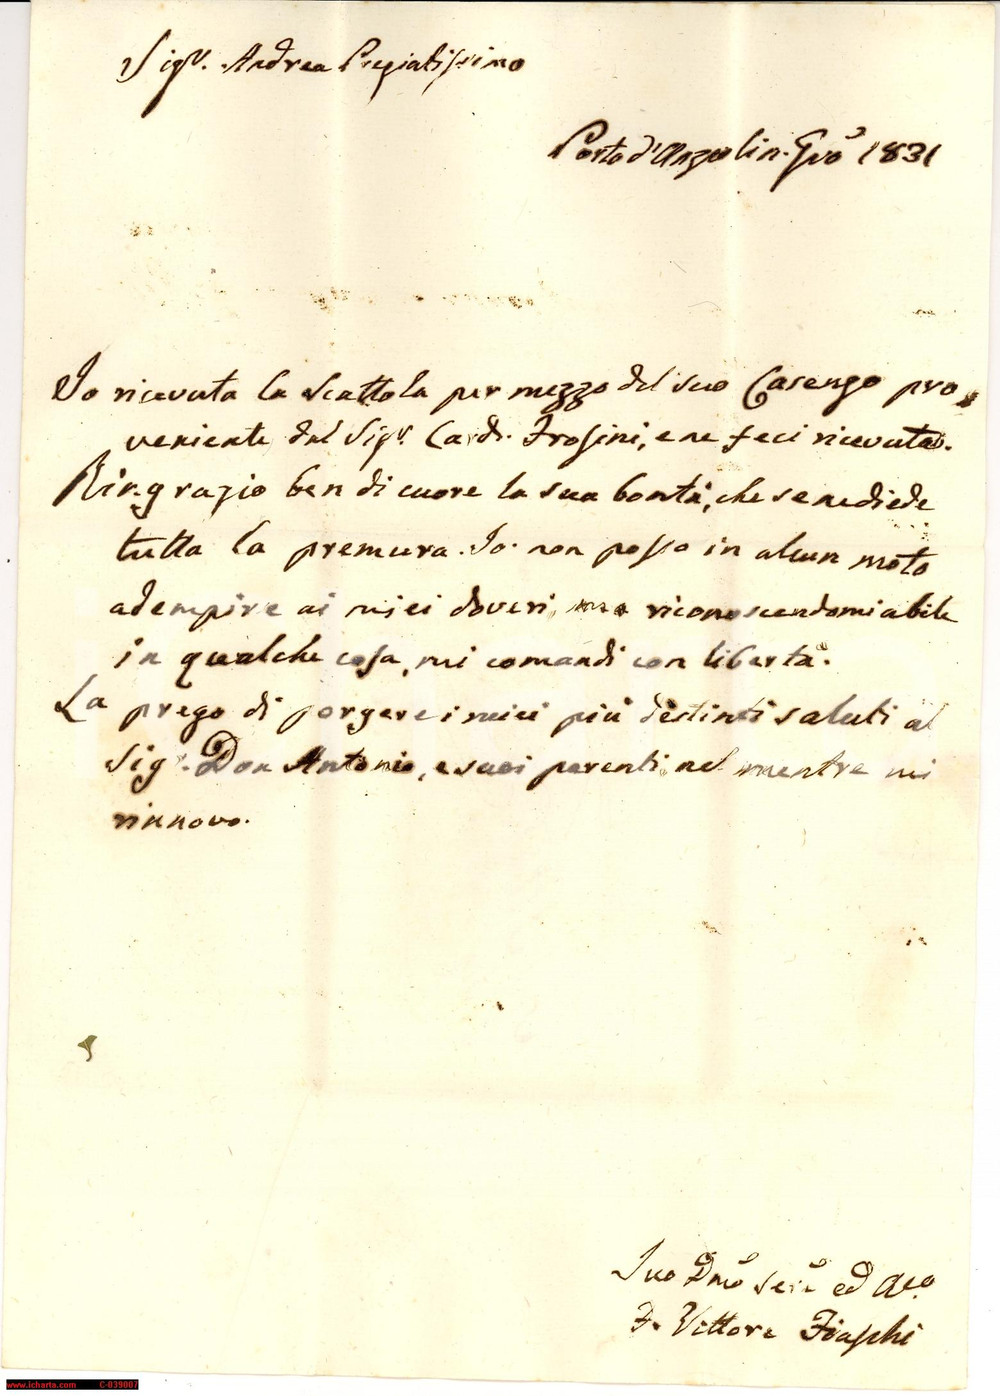 Sigr. Andrea Pregiatissimo
Porto d'Anzo li n. Gno 1831
Io ricevuta la scattola per mezzo del suo Casengo pro,
veniente dal Sigr. Card. Frosini, e ne feci ricevuta.
Ringrazio ben di cuore la sua bontà, che se ne diede
tutta la premura. Io non posso in alcun moto
adempire ai miei doveri, ma riconoscendomi abile
in qualche cosa, mi comandi con libertà.
La prego di porgere i miei più distinti saluti al
Sigr. Don Antonio, e suoi parenti, nel mentre mi
rinnovo.
Suo Dmo Serv. ed Aco.
F. Vittore Fiaschi
www.icharta.com C-039007